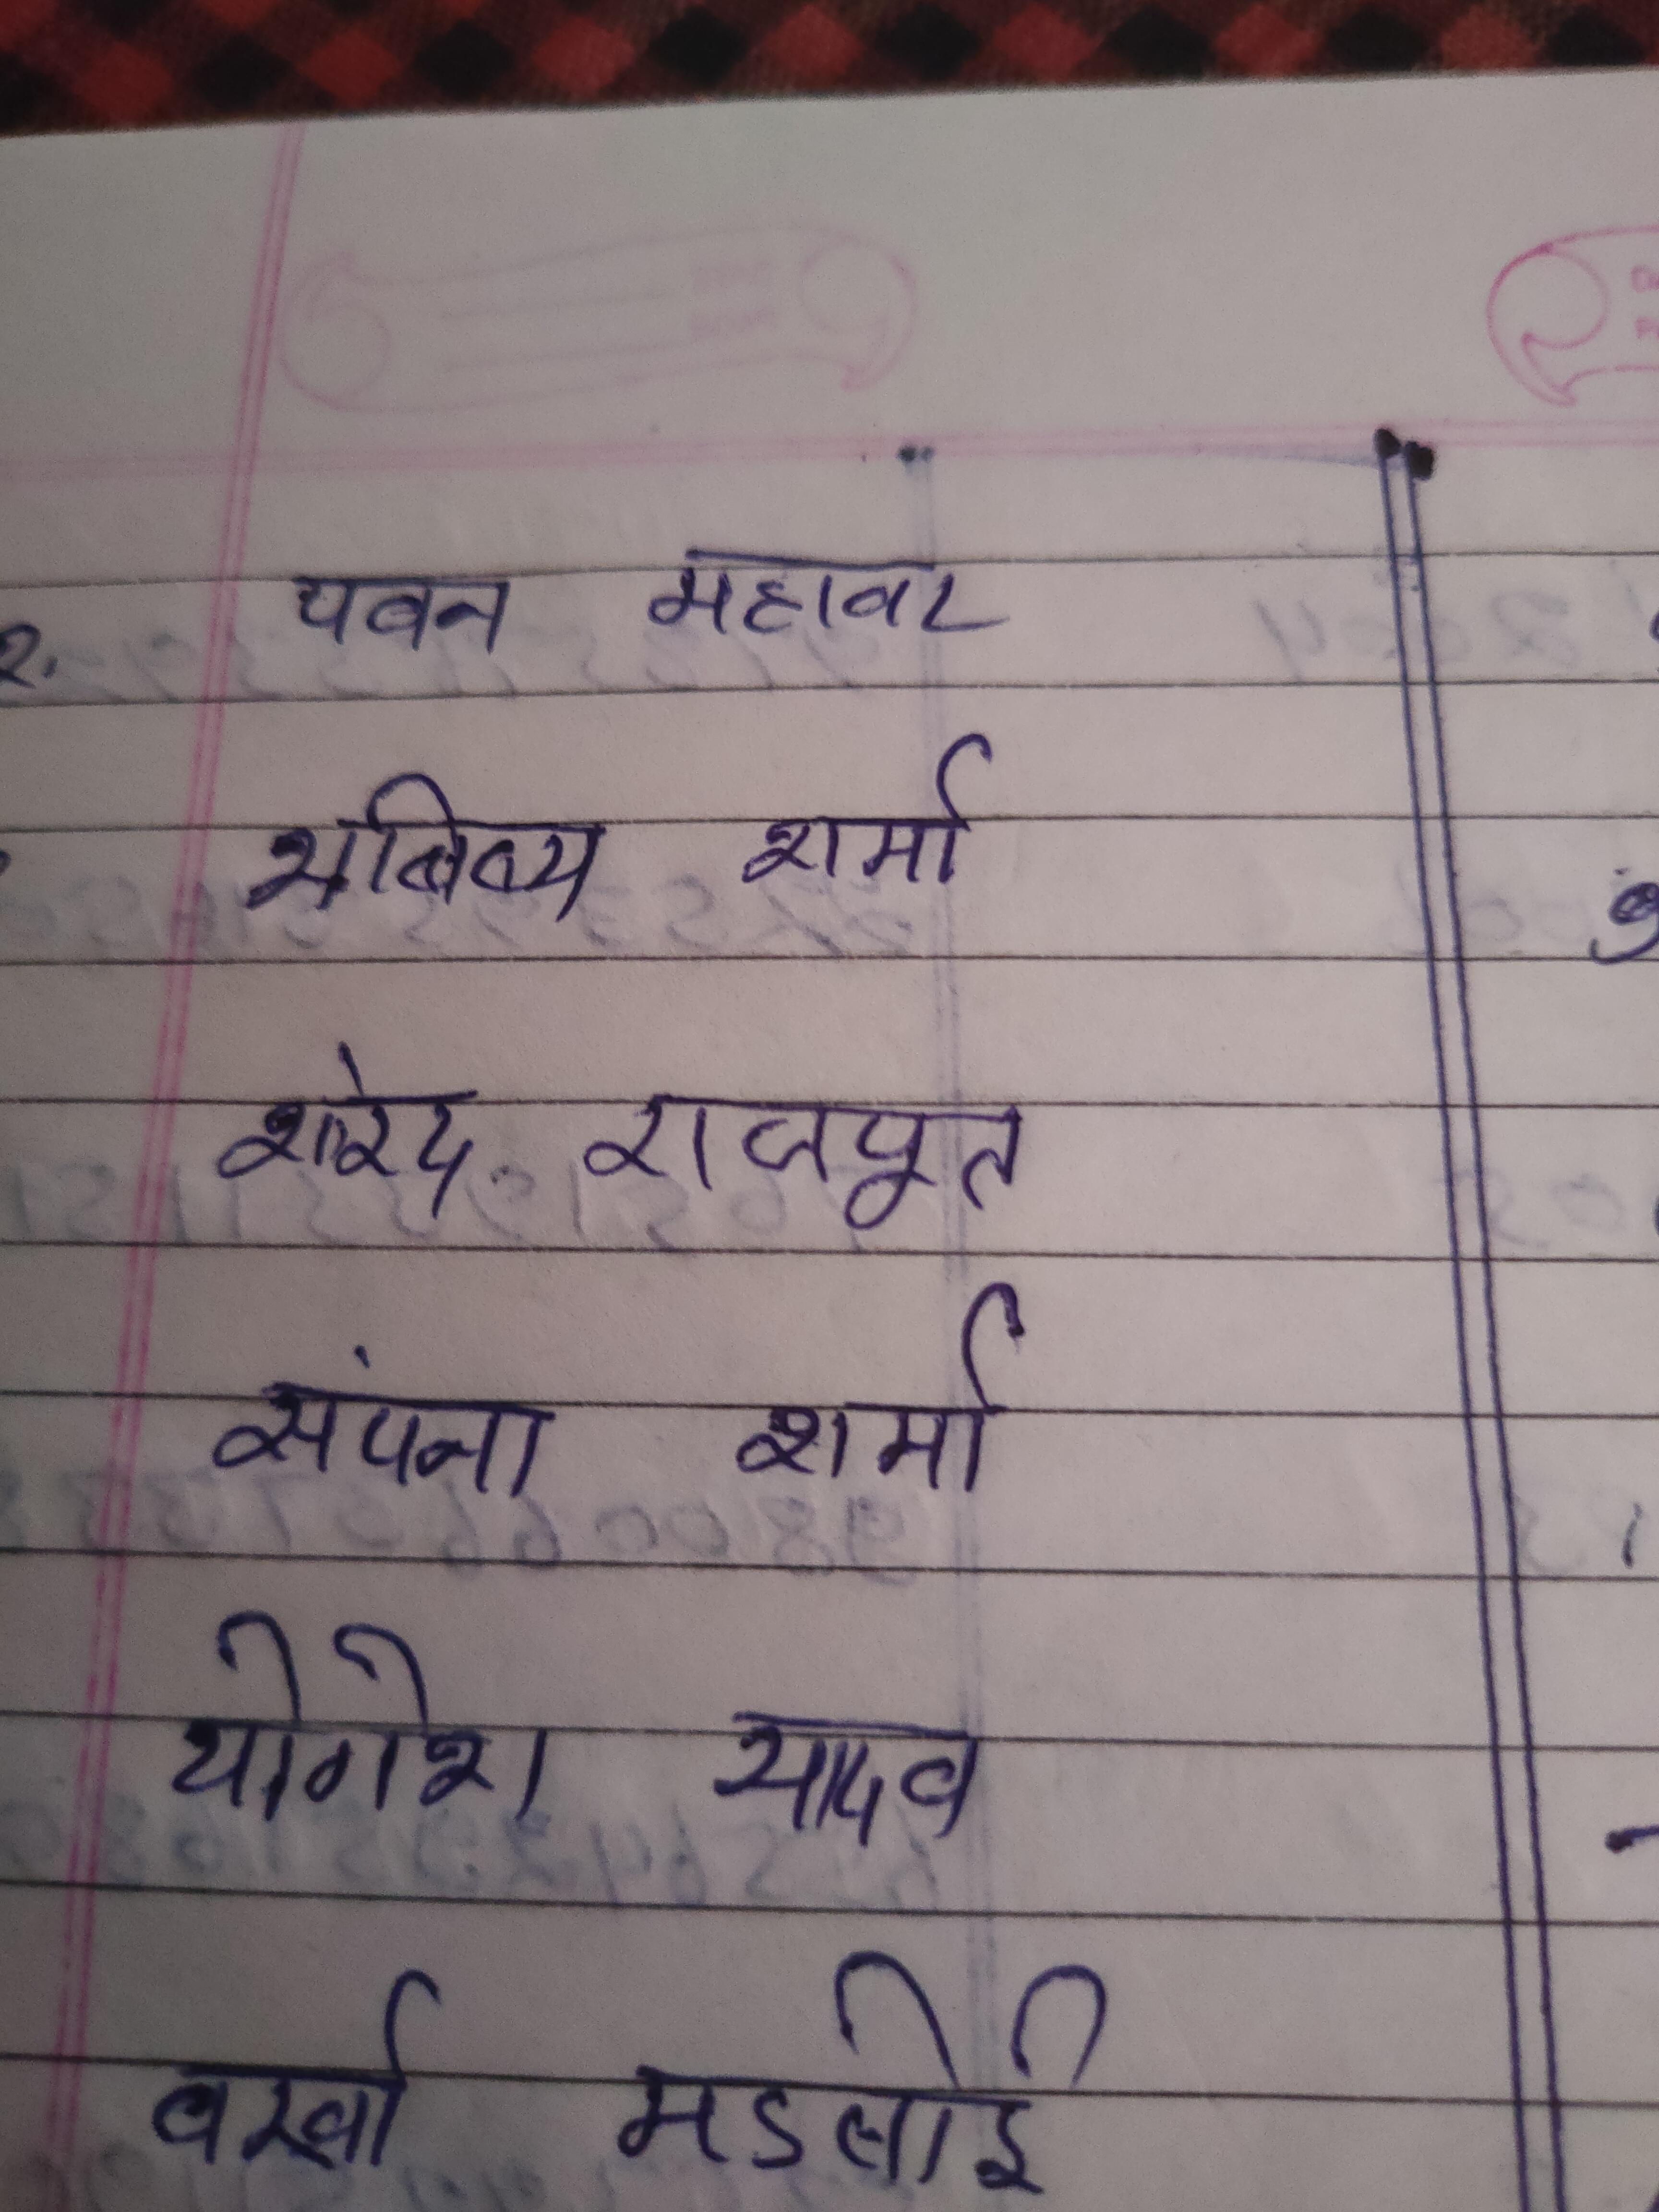 २. पवन महावर
भविव्य शर्मा
शरेद राजपूत
संपना शर्मा
योगेश यादव
वर्खा मडलोई